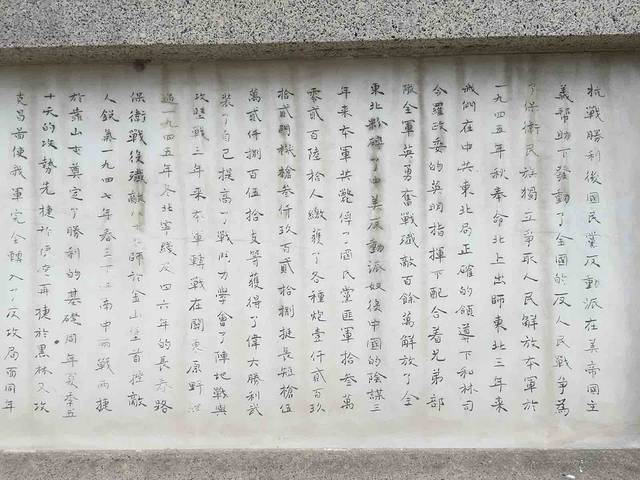 抗戰勝利後國民黨反動派在美帝國主
義幫助下發動了全國的反人民戰爭為
了保衛民族獨立爭取人民解放本軍於
一九四五年秋奉命北上出師東北三年來
我們在中共東北局正確的領導下和林司
令羅政委的英明指揮下配合着兄弟部
隊全軍英勇奮戰殲敵百餘萬解放了全
東北粉碎了中美反動派奴役中國的陰謀三
年來本軍共斃俘了國民黨匪軍拾叁萬
零貳百陸拾人繳獲了各種炮壹仟貳百玖
拾貳門機槍叁仟玖百貳拾捌挺長短槍伍
萬貳仟捌百伍拾支等獲得了偉大勝利武
裝了自己提高了戰鬥力學會了陣地戰與
攻堅戰三年來本軍轉戰在關東原野
過一九四五年冬北寧綫反四六年的長春路
保衛戰後殲敵 師於金山堡首挫敵
人銳氣一九四七年春三下江南中兩戰兩捷
於靠山屯奠定了勝利的基礎同年夏季五
十天的攻勢先捷於 再捷於黑林又攻
克昌圖使我軍完全轉入了反攻局面同年